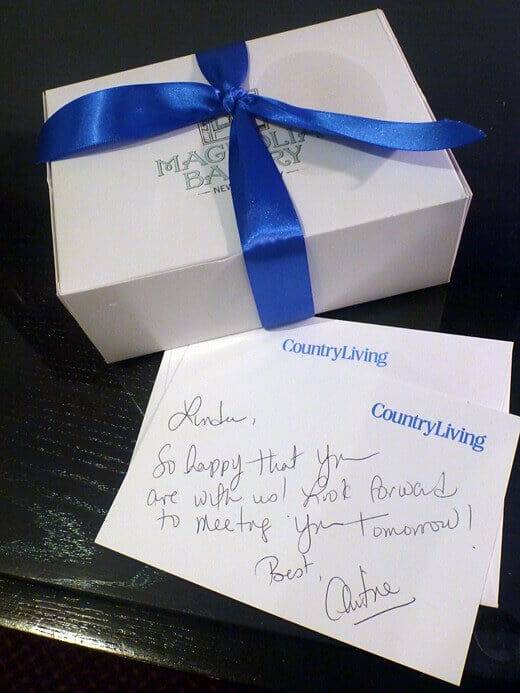 MAGNOLIA
BAKERY
NEW
CountryLiving
CountryLiving
Linda,
So happy that you
are with us! Look forward
to meeting you tomorrow!
Best,